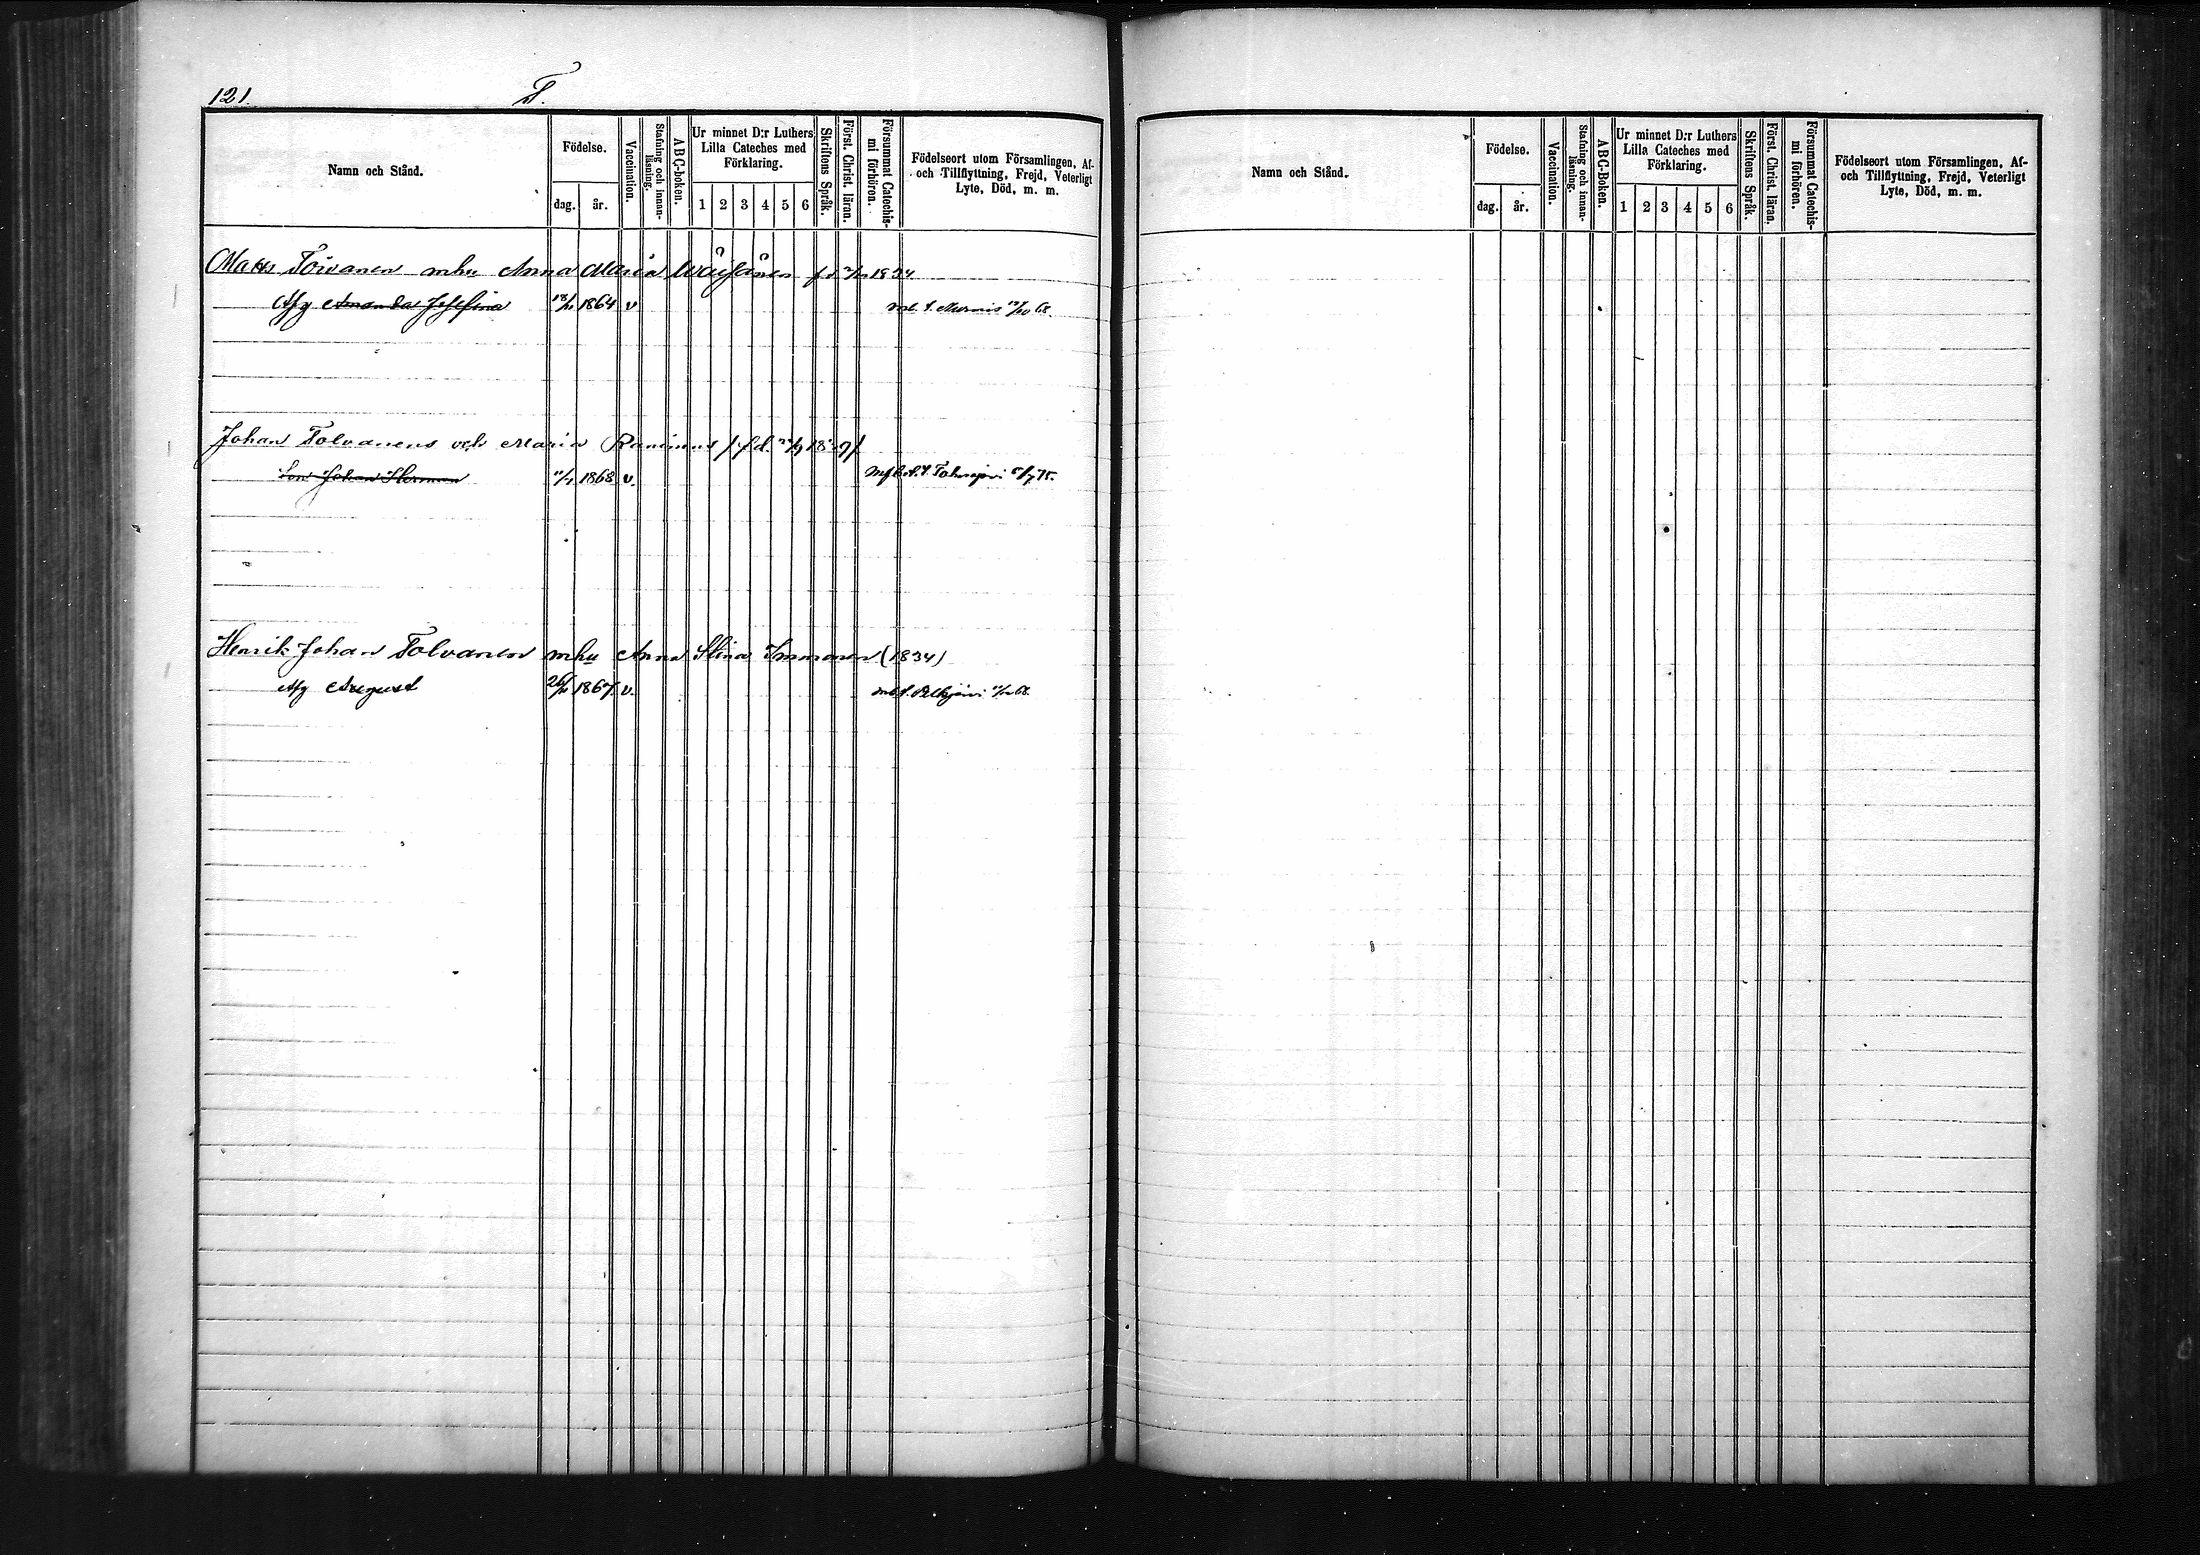 121. T.
Namn och Stånd.
Födelse.
dag. år.
Vaccination.
Stafning och innan-
läsning.
ABC-boken.
Ur minnet D:r Luthers
Lilla Cateches med
Förklaring.
1 2 3 4 5 6
Skriftens Språk.
Först. Christ. läran.
Försummat Catechis-
mi förhören.
Födelseort utom Församlingen, Af-
och Tillflyttning, Frejd, Veterligt
Lyte, Död, m. m.
Matts Toivanen mhu Anna Maria Wäisänen
Afg Amanda Josefina 1864 v
Johan Tolvanens och Maria
Son Johan Herman 1868 v.
Henrik Johan Tolvanen mhu Anna Stina Immonen (1834)
Afg August 1867 v.
Namn och Stånd.
Födelse.
dag. år.
Vaccination.
Stafning och innan-
läsning.
ABC-Boken.
Ur minnet D:r Luthers
Lilla Cateches med
Förklaring.
1 2 3 4 5 6
Skriftens Språk.
Först. Christ. läran.
Försummat Catechis-
mi förhören.
Födelseort utom Församlingen, Af-
och Tillflyttning, Frejd, Veterligt
Lyte, Död, m. m.